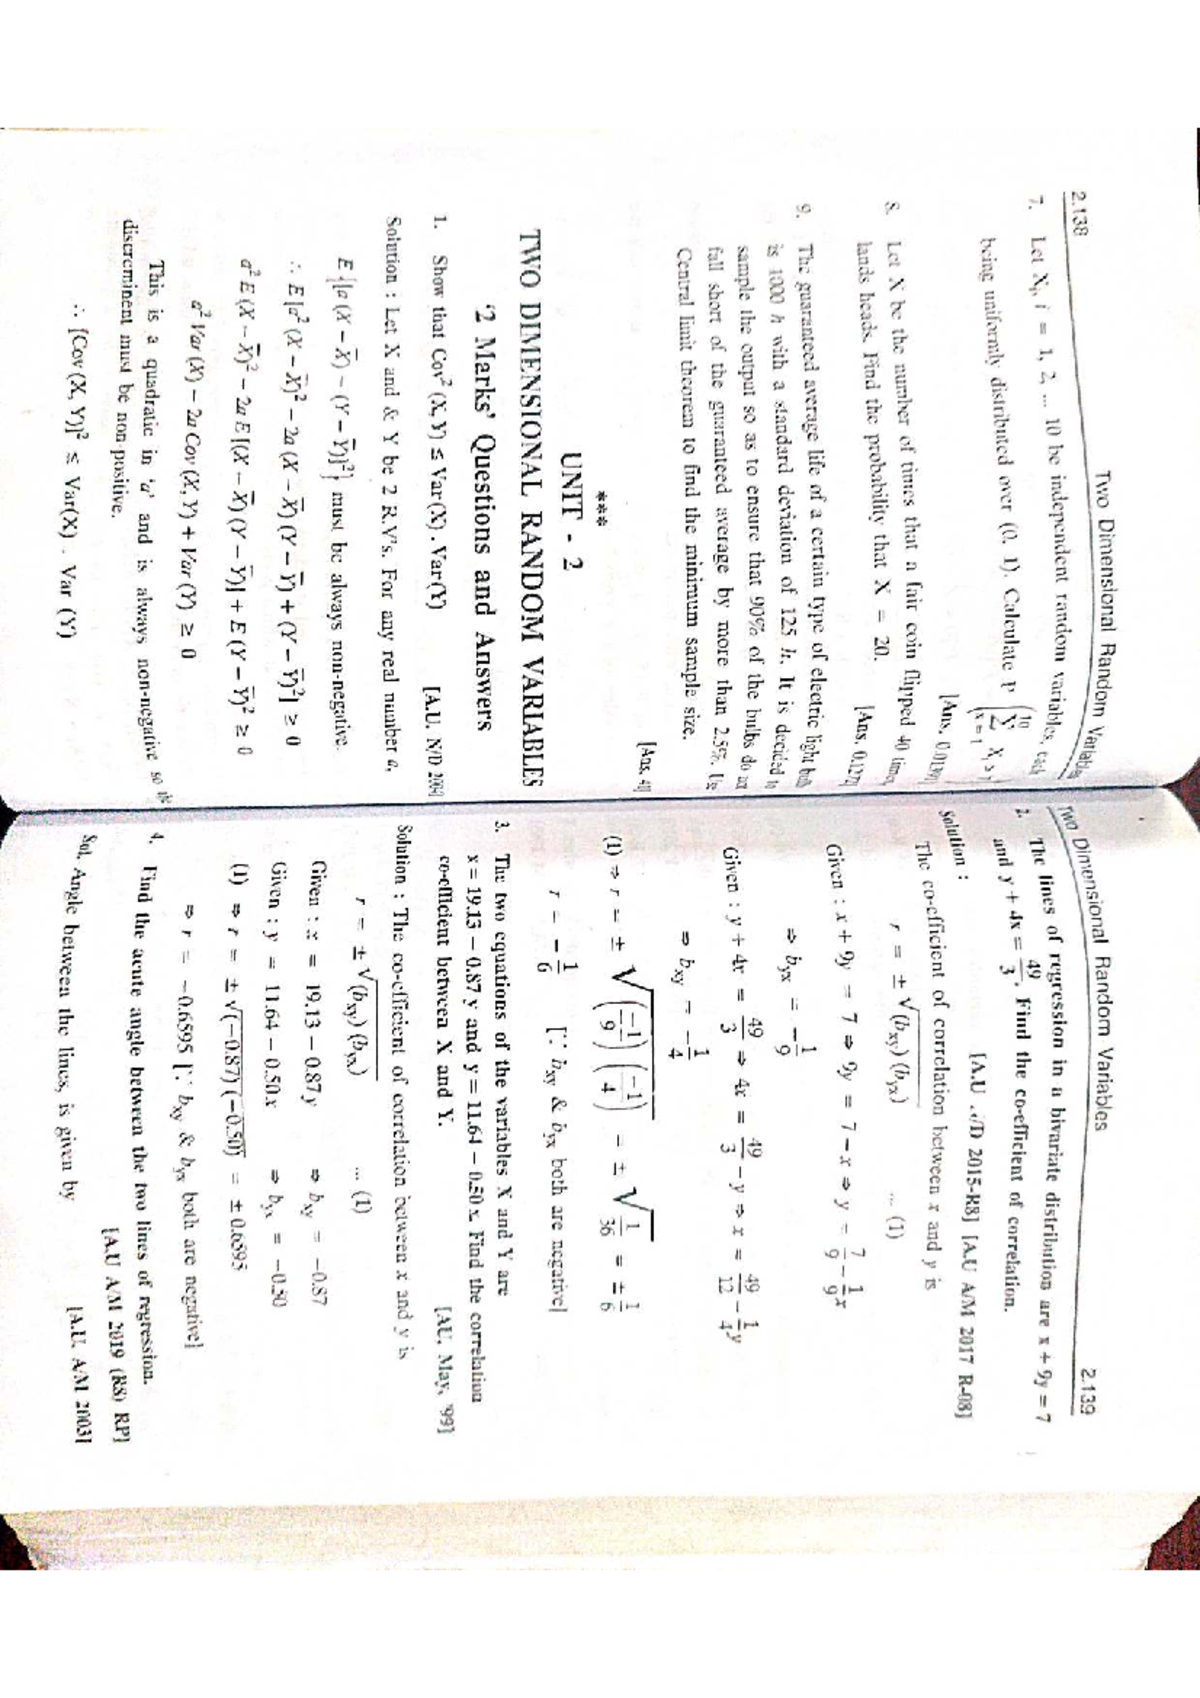 2.138
Two Dimensional Random Variable
7. Let Xᵢ, i = 1, 2, ... 10 be independent random variables, each
being uniformly distributed over (0, 1). Calculate P
[Ans. 0.0139]
8. Let X be the number of times that a fair coin flipped 40 times
lands heads. Find the probability that X = 20.
[Ans. 0.127]
9. The guaranteed average life of a certain type of electric light bulb
is 1000 h with a standard deviation of 125 h. It is decided to
sample the output so as to ensure that 90% of the bulbs do not
fall short of the guaranteed average by more than 2.5%. Use
Central limit theorem to find the minimum sample size.
[Ans. 41]
***
UNIT - 2
TWO DIMENSIONAL RANDOM VARIABLES
'2 Marks' Questions and Answers
1. Show that Cov² (X, Y) ≤ Var (X) . Var(Y) [A.U. N/D
Solution : Let X and & Y be 2 R.V's. For any real number a,
E {[a (X − X̄) − (Y − Ȳ)]²} must be always non-negative.
∴ E [a² (X − X̄)² − 2a (X − X̄) (Y − Ȳ) + (Y − Ȳ)²] ≥ 0
a² E (X − X̄)² − 2a E [(X − X̄) (Y − Ȳ)] + E (Y − Ȳ)² ≥ 0
a² Var (X) − 2a Cov (X, Y) + Var (Y) ≥ 0
This is a quadratic in 'a' and is always non-negative so the
discreminent must be non-positive.
∴ [Cov (X, Y)]² ≤ Var(X) . Var (Y)
Two Dimensional Random Variables
2.139
2. The lines of regression in a bivariate distribution are x + 9y = 7
and y + 4x = 49/3. Find the co-efficient of correlation.
[A.U N/D 2015-R8] [A.U A/M 2017 R-08]
Solution :
The co-efficient of correlation between x and y is
r = ± √(bxy) (byx) ... (1)
Given : x + 9y = 7 ⇒ 9y = 7 − x ⇒ y = 7/9 − 1/9 x
⇒ byx = − 1/9
Given : y + 4x = 49/3 ⇒ 4x = 49/3 − y ⇒ x = 49/12 − 1/4 y
⇒ bxy = − 1/4
(1) ⇒ r = ± √(−1/9) (−1/4) = ± √1/36 = ± 1/6
r = − 1/6 [∵ bxy & byx both are negative]
3. The two equations of the variables X and Y are
x = 19.13 − 0.87 y and y = 11.64 − 0.50 x. Find the correlation
co-efficient between X and Y. [AU, May, '99]
Solution : The co-efficient of correlation between x and y is
r = ± √(bxy) (byx) ... (1)
Given : x = 19.13 − 0.87 y ⇒ bxy = −0.87
Given : y = 11.64 − 0.50 x ⇒ byx = −0.50
(1) ⇒ r = ± √(−0.87) (−0.50) = ± 0.6595
⇒ r = −0.6595 [∵ bxy & byx both are negative]
4. Find the acute angle between the two lines of regression.
[A.U A/M 2019 (R8) RP]
Sol. Angle between the lines, is given by [A.U. A/M 2003]